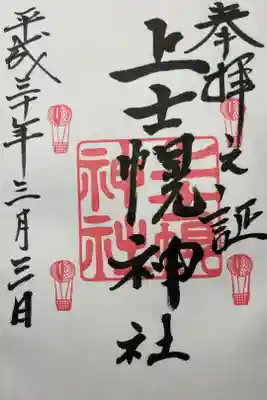 奉拝之証
上士幌神社
平成三十年三月三日
上士幌
神社